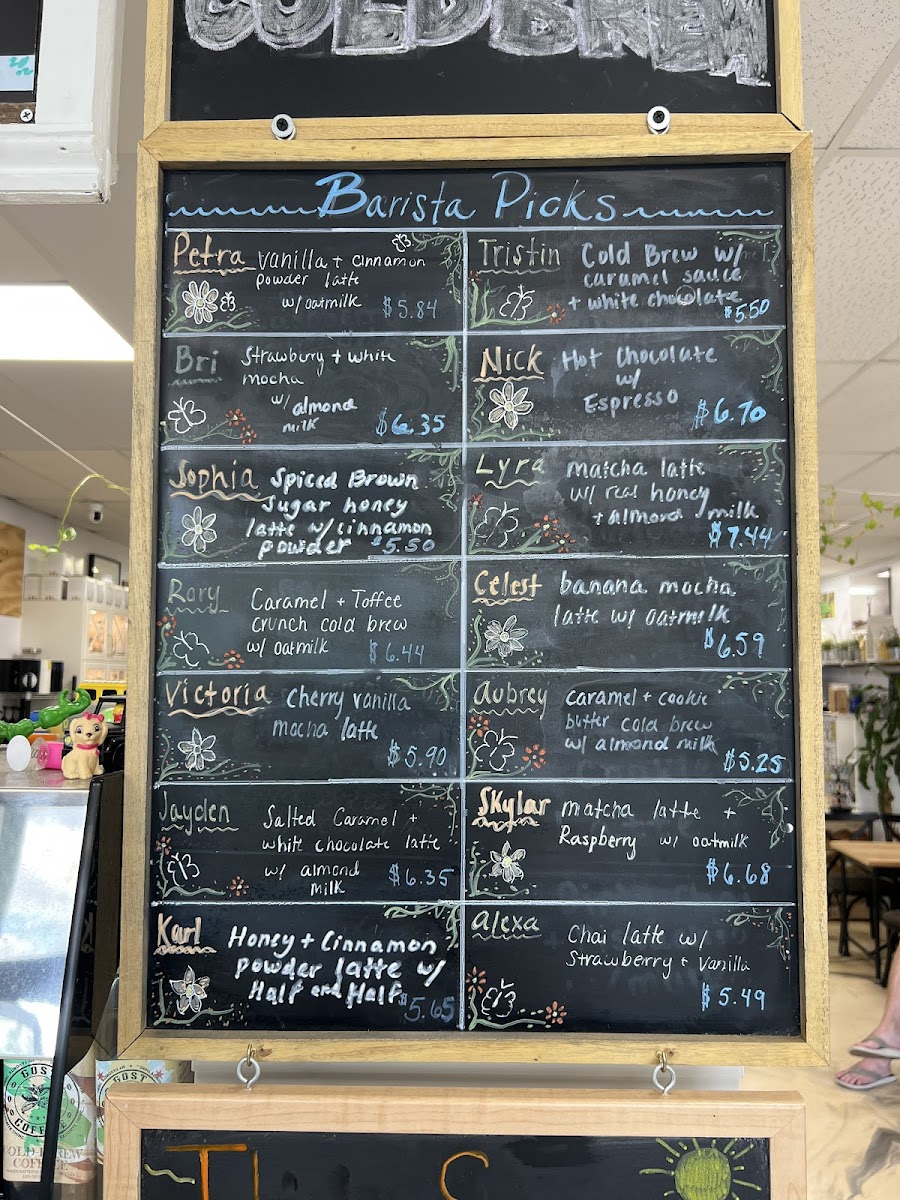 COLD BREW
Barista Picks
Petra
Vanilla + cinnamon
powder latte
w/ oatmilk
$5.84
Tristin
Cold Brew w/
caramel sauce
+ white chocolate
$5.50
Bri
Strawberry + white
mocha
w/
almond
milk
$6.35
Nick
Hot Chocolate
w/
Espresso
$6.70
Sophia
Spiced Brown
Sugar honey
latte w/ cinnamon
powder $5.50
Lyra
matcha latte
w/ real honey
+ almond milk
$7.44
Rory
Caramel + Toffee
crunch cold brew
w/ oatmilk
$6.44
Celest
banana mocha
latte w/ oatmilk
$6.59
Victoria
Cherry vanilla
mocha latte
$5.90
Aubrey
caramel + cookie
butter cold brew
w/ almond milk
$5.25
Jayden
Salted Caramel +
white chocolate latte
w/ almond
milk
$6.35
Skylar
matcha latte +
Raspberry w/ oatmilk
$6.68
Karl
Honey + Cinnamon
powder latte w/
Half and Half
$5.65
Alexa
Chai latte w/
Strawberry + Vanilla
$5.49
GOST
COFFEE
COLD BREW
COFFEE
GOST